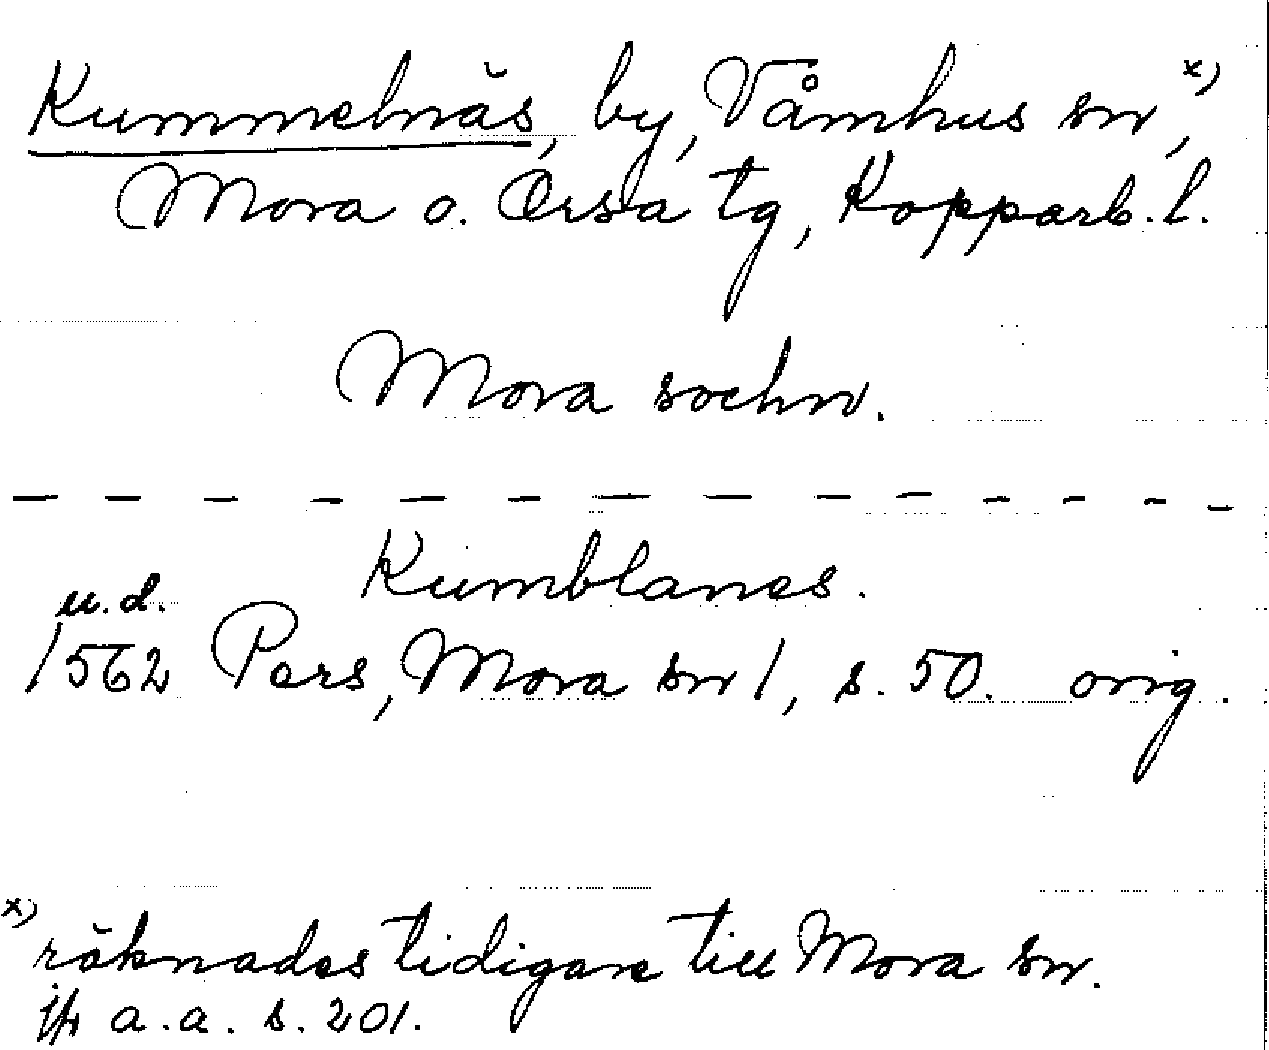 Kummelnäs, by, Våmhus sn x),
Mora o. Orsa tg, Kopparb. l.
Mora sochn.
Kumblanes.
u.d.
1562 Pers, Mora sn 1, s. 50. orig.
x) räknades tidigare till Mora sn.
jfr a.a. s. 201.